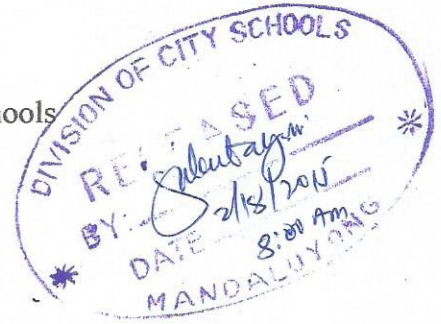 hools
DIVISION OF CITY SCHOOLS
RELEASED
BY:
DATE 2/18/2015
8:00 AM
MANDALUYONG